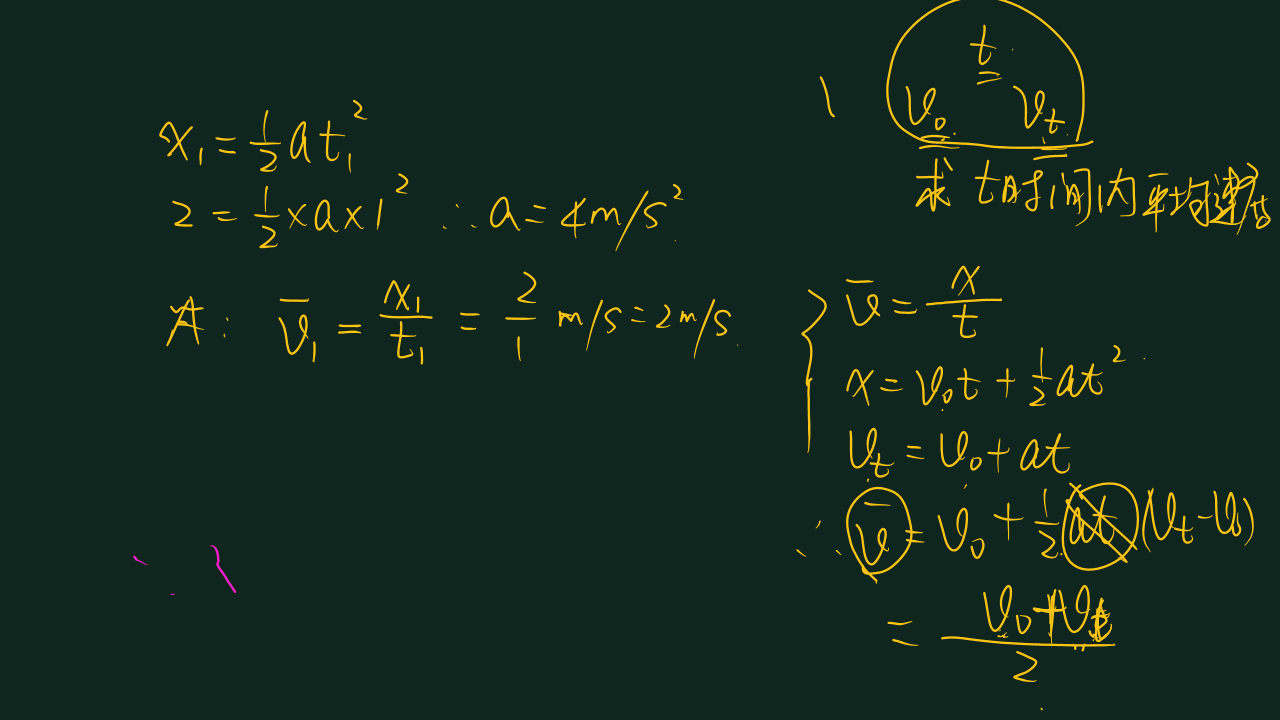 x₁ = ½at₁²
2 = ½×a×1² ∴ a = 4m/s²
A: v̄₁ = x₁/t₁ = 2/1 m/s = 2m/s
t
v₀ vₜ
求 t时间内平均速度
v̄ = x/t
x = v₀t + ½at²
vₜ = v₀ + at
∴ v̄ = v₀ + ½ at (vₜ - v₀)
= (v₀ + vₜ)/2